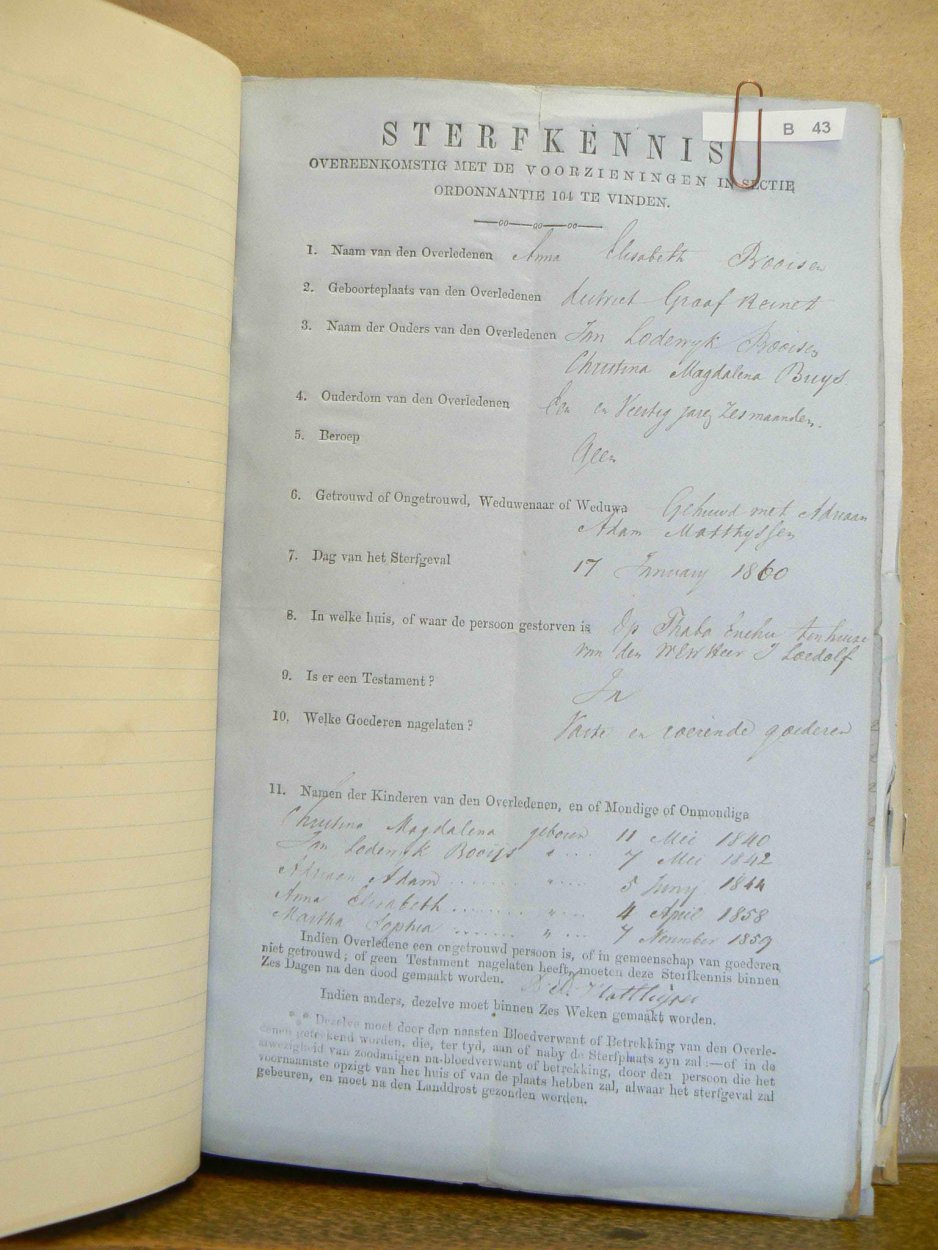 B 43
STERFKENNIS
OVEREENKOMSTIG MET DE VOORZIENINGEN IN SECTIE
ORDONNANTIE 104 TE VINDEN.
1. Naam van den Overledenen Anna Elisabeth Booisen
2. Geboorteplaats van den Overledenen district Graaf Reinet
3. Naam der Ouders van den Overledenen Jan Lodewyk Booisen
Christina Magdalena Buys
4. Ouderdom van den Overledenen Een en Veertig jaren Zes maanden.
5. Beroep Geen
6. Getrouwd of Ongetrouwd, Weduwenaar of Weduwe Gehuwd met Adriaan
Adam Matthyssen
7. Dag van het Sterfgeval 17 January 1860
8. In welke huis, of waar de persoon gestorven is Op Thaba ten huise
van den Heer J
9. Is er een Testament? Ja
10. Welke Goederen nagelaten? Vaste en roerende goederen
11. Namen der Kinderen van den Overledenen, en of Mondige of Onmondige
Christina Magdalena geboren 11 Mei 1840
Jan Lodewyk Booijs " .... 7 Mei 1842
Adriaan Adam ........ " .... 5 Juny 1844
Anna Elisabeth ....... " .... 4 April 1858
Martha Sophia ....... " .... 7 November 1859
Indien Overledene een ongetrouwd persoon is, of in gemeenschap van goederen
niet getrouwd; of geen Testament nagelaten heeft, moeten deze Sterfkennis binnen
Zes Dagen na den dood gemaakt worden.
Indien anders, dezelve moet binnen Zes Weken gemaakt worden.
*** Dezelve moet door den naasten Bloedverwant of Betrekking van den Overle-
denen geteekend worden, die, ter tyd, aan of naby de Sterfplaats zyn zal:—of in de
afwezigheid van zoodanigen na-bloedverwant of betrekking, door den persoon die het
voornaamste opzigt van het huis of van de plaats hebben zal, alwaar het sterfgeval zal
gebeuren, en moet na den Landdrost gezonden worden.